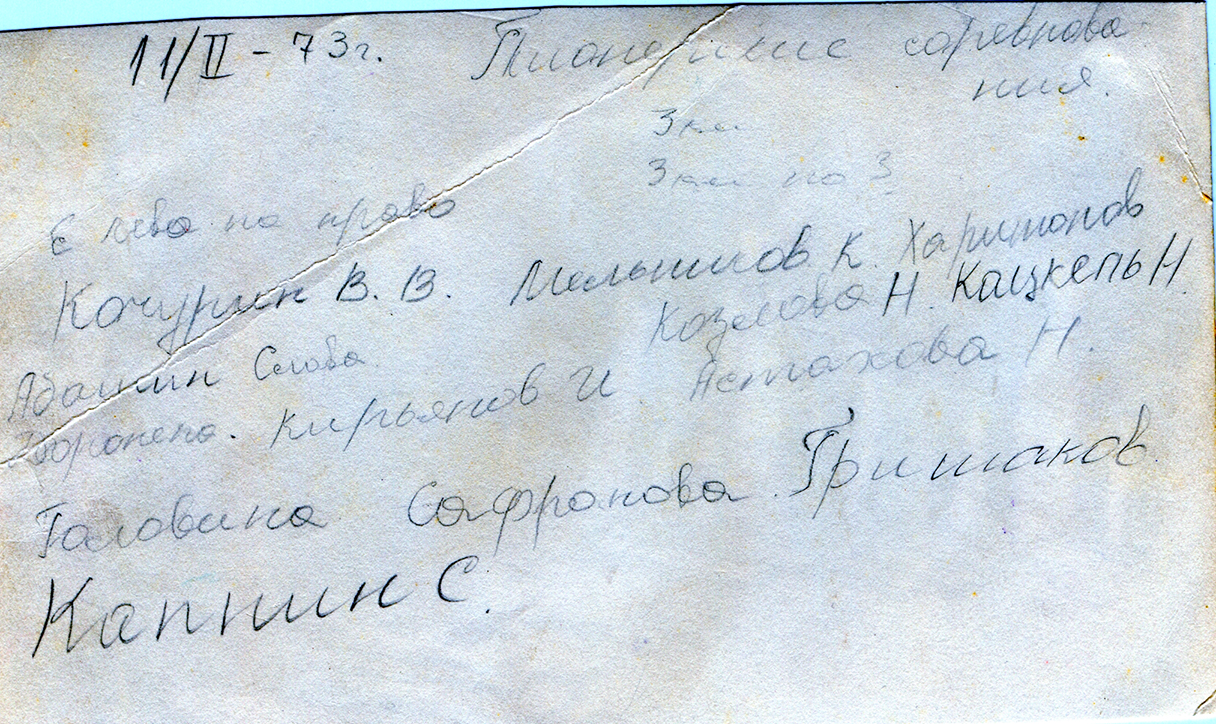 11/II - 73г. Пионерские соревнова-
ния.
3 км
3 км по 3
С лева на право
Кочурин В. В. Мельников К. Харитонов
Козлова Н. Кацкепь Н.
Адашин Слава
Кирьянов И Астахова Н.
Головина Сафронова Гришаков
Капнин С.